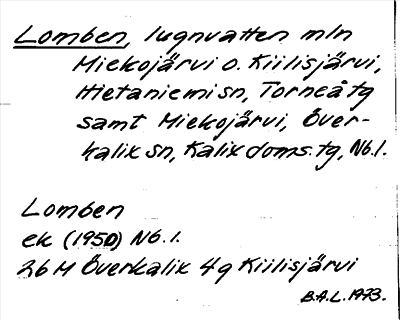 Lomben, lugnvatten mln
Miekojärvi o. Kiilisjärvi,
Hietaniemi sn, Torneå tg
samt Miekojärvi, Över-
kalix sn, Kalix doms. tg, Nb.l.
Lomben
ek (1950) Nb.l.
26M Överkalix 4g Kiilisjärvi
B.A.L. 1973.